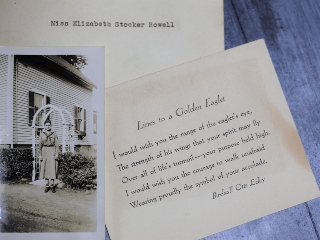 Miss Elizabeth Stocker Rowell
Lines to a Golden Eaglet
I would wish you the range of the eaglet's eye,
The strength of his wings that your spirit may fly
Over all of life's turmoil—your purpose held high.
I would wish you the courage to walk unafraid
Wearing proudly the symbol of your accolade.
Otto Laley